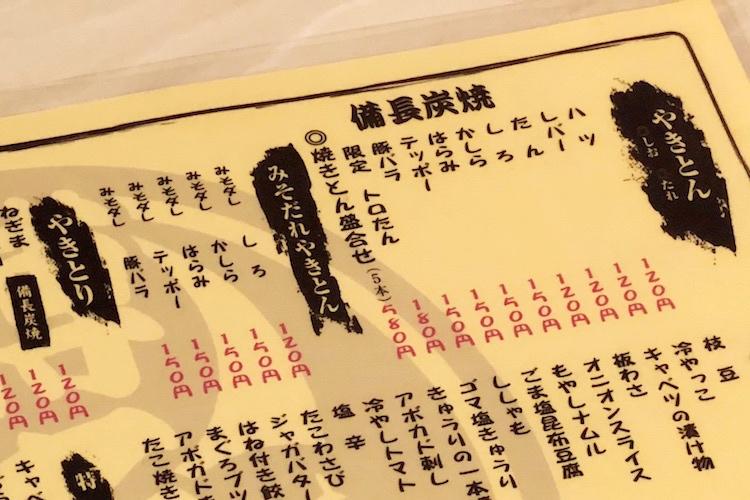 やきとん
しお たれ
備長炭焼
ハツ 120円
レバー 120円
たん 120円
しろ 120円
かしら 150円
はらみ 150円
テッポー 150円
豚バラ 150円
限定 トロたん 180円
◎焼きとん盛合せ(5本) 580円
みそだれやきとん
みそダレ しろ 120円
みそダレ かしら 150円
みそダレ はらみ 150円
みそダレ テッポー 150円
みそダレ 豚バラ 150円
やきとり
備長炭焼
ねぎま
120円
120円
120円
枝豆
冷やっこ
キャベツの漬け物
板わさ
オニオンスライス
もやしナムル
ごま塩昆布豆腐
ししゃも
ゴマ塩きゅうり
きゅうりの一本
アボカド刺し
冷やしトマト
塩辛
たこわさび
ジャガバター
はね付き餃
まぐろブツ
アボカド
たこ焼き
特
キャベ